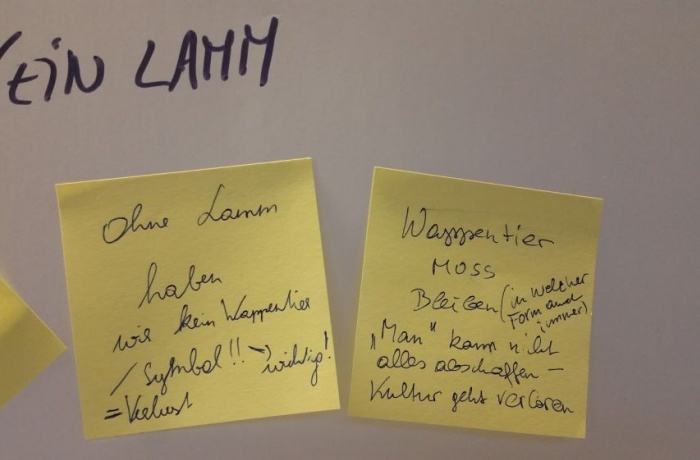 KEIN LAMM
Ohne Lamm
haben
wir kein Wappentier
/ Symbol!! → wichtig!
= Verlust
Wappentier
MUSS
Bleiben (in welcher
Form auch
immer)
„Man" kann nicht
alles abschaffen –
Kultur geht verloren